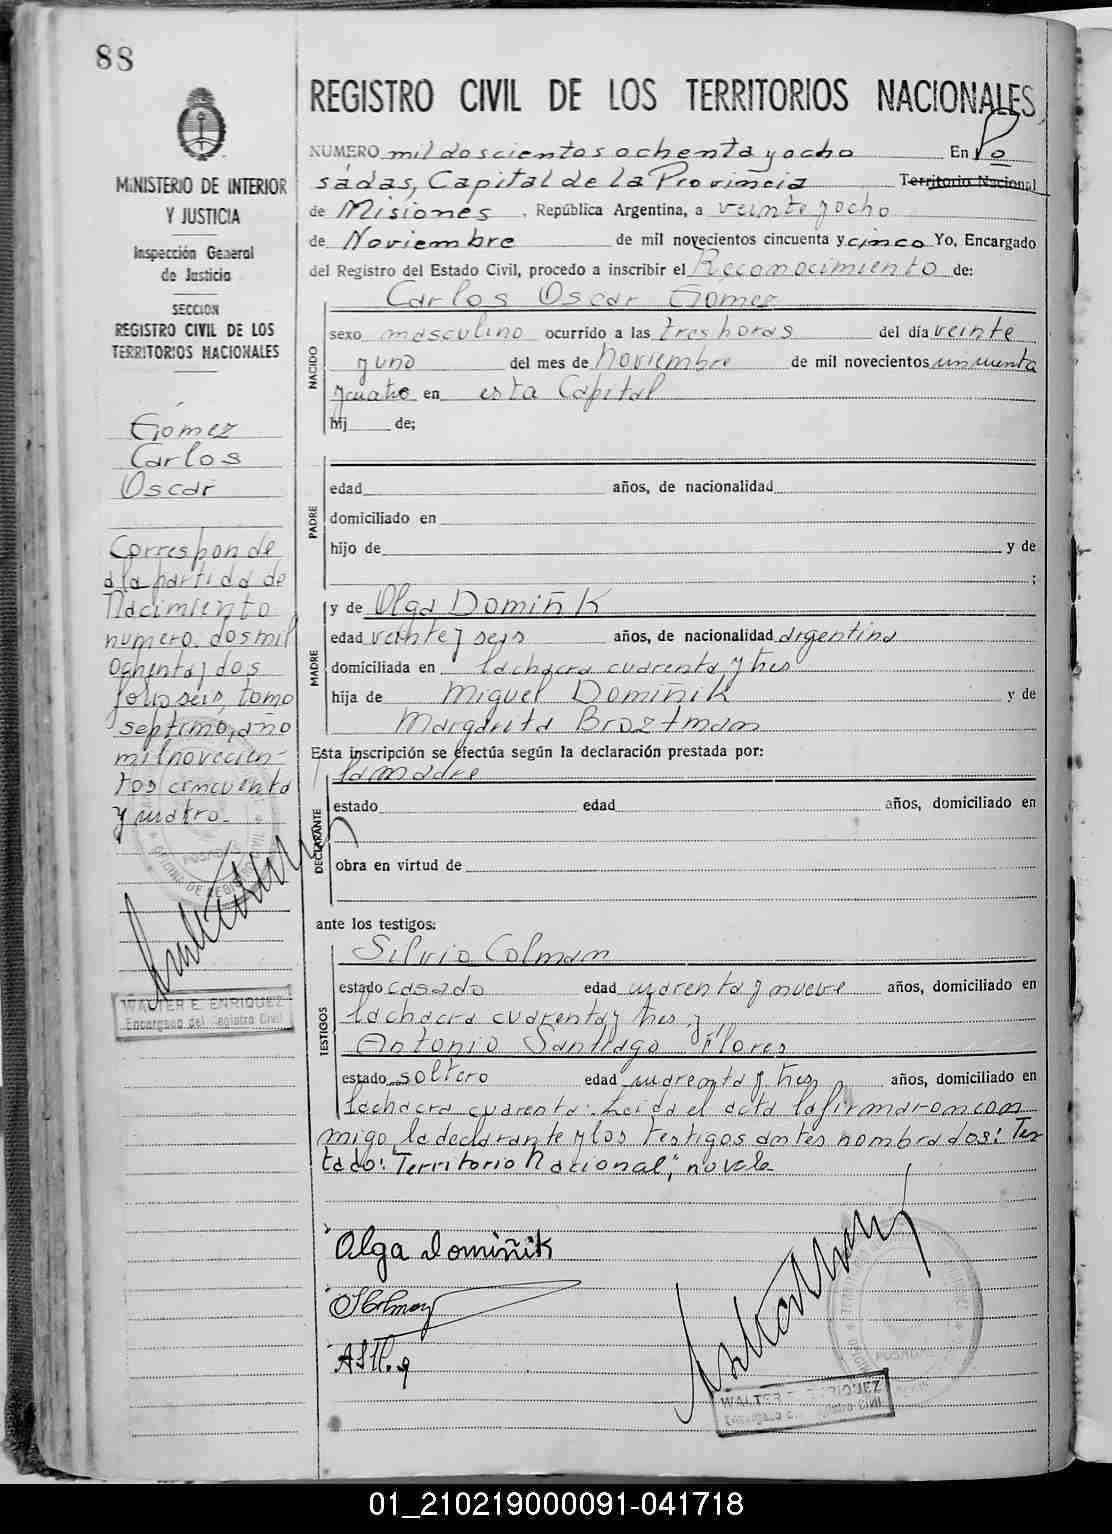 88
MINISTERIO DE INTERIOR
Y JUSTICIA
Inspección General
de Justicia
SECCION
REGISTRO CIVIL DE LOS
TERRITORIOS NACIONALES
Gómez
Carlos
Oscar
Corresponde
a la partida de
Nacimiento
numero dos mil
ochenta y dos
folio seis, tomo
septimo, año
mil novecien-
tos cincuenta
y cuatro.
WALTER E. ENRIQUEZ
Encargado del Registro Civil
REGISTRO CIVIL DE LOS TERRITORIOS NACIONALES
NUMERO mil doscientos ochenta y ocho En Po
sadas, Capital de la Provincia Territorio Nacional
de Misiones, República Argentina, a veinte y ocho
de Noviembre de mil novecientos cincuenta y cinco Yo, Encargado
del Registro del Estado Civil, procedo a inscribir el Reconocimiento de:
Carlos Oscar Gómez
NACIDO
sexo masculino ocurrido a las tres horas del día veinte
y uno del mes de Noviembre de mil novecientos cincuenta
y cuatro en esta Capital
hij de;
PADRE
edad años, de nacionalidad
domiciliado en
hijo de y de
;
MADRE
y de Olga Domiñik
edad veinte y seis años, de nacionalidad argentina
domiciliada en la chacra cuarenta y tres
hija de Miguel Domiñik y de
Margarita Broztman
Esta inscripción se efectúa según la declaración prestada por:
la madre
DECLARANTE
estado edad años, domiciliado en
obra en virtud de
ante los testigos:
Silvio Colman
TESTIGOS
estado casado edad cuarenta y nueve años, domiciliado en
la chacra cuarenta y tres y,
Antonio Santiago Flores
estado soltero edad cuarenta y tres años, domiciliado en
la chacra cuarenta: Leida el acta la firmaron con
migo, la declarante y los testigos antes nombrados: Tes
tado: "Territorio Nacional"; no vale
Olga Domiñik
WALTER E. ENRIQUEZ
Encargado del Registro Civil
01_210219000091-041718